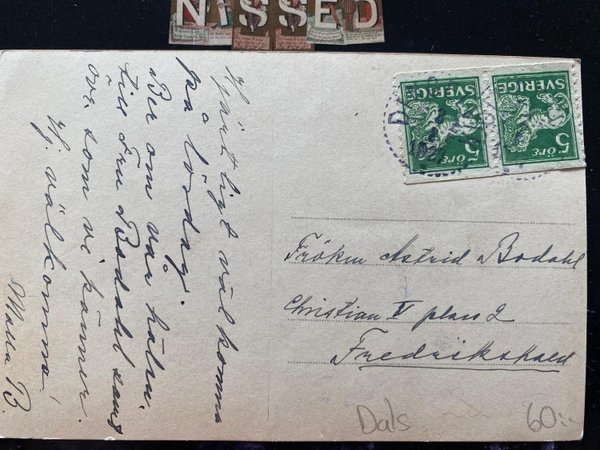 NISSED
Hjärtligt välkomna
på lördag.
Ber om vår hälsn.
till Fru Bodahl samt
övr. som vi känner.
Hj. välkomna!
Maria B.
SVERIGE
5 öre
SVERIGE
5 öre
Fröken Astrid Bodahl
Christian V plass 2
Fredrikshald
Dals
60:-